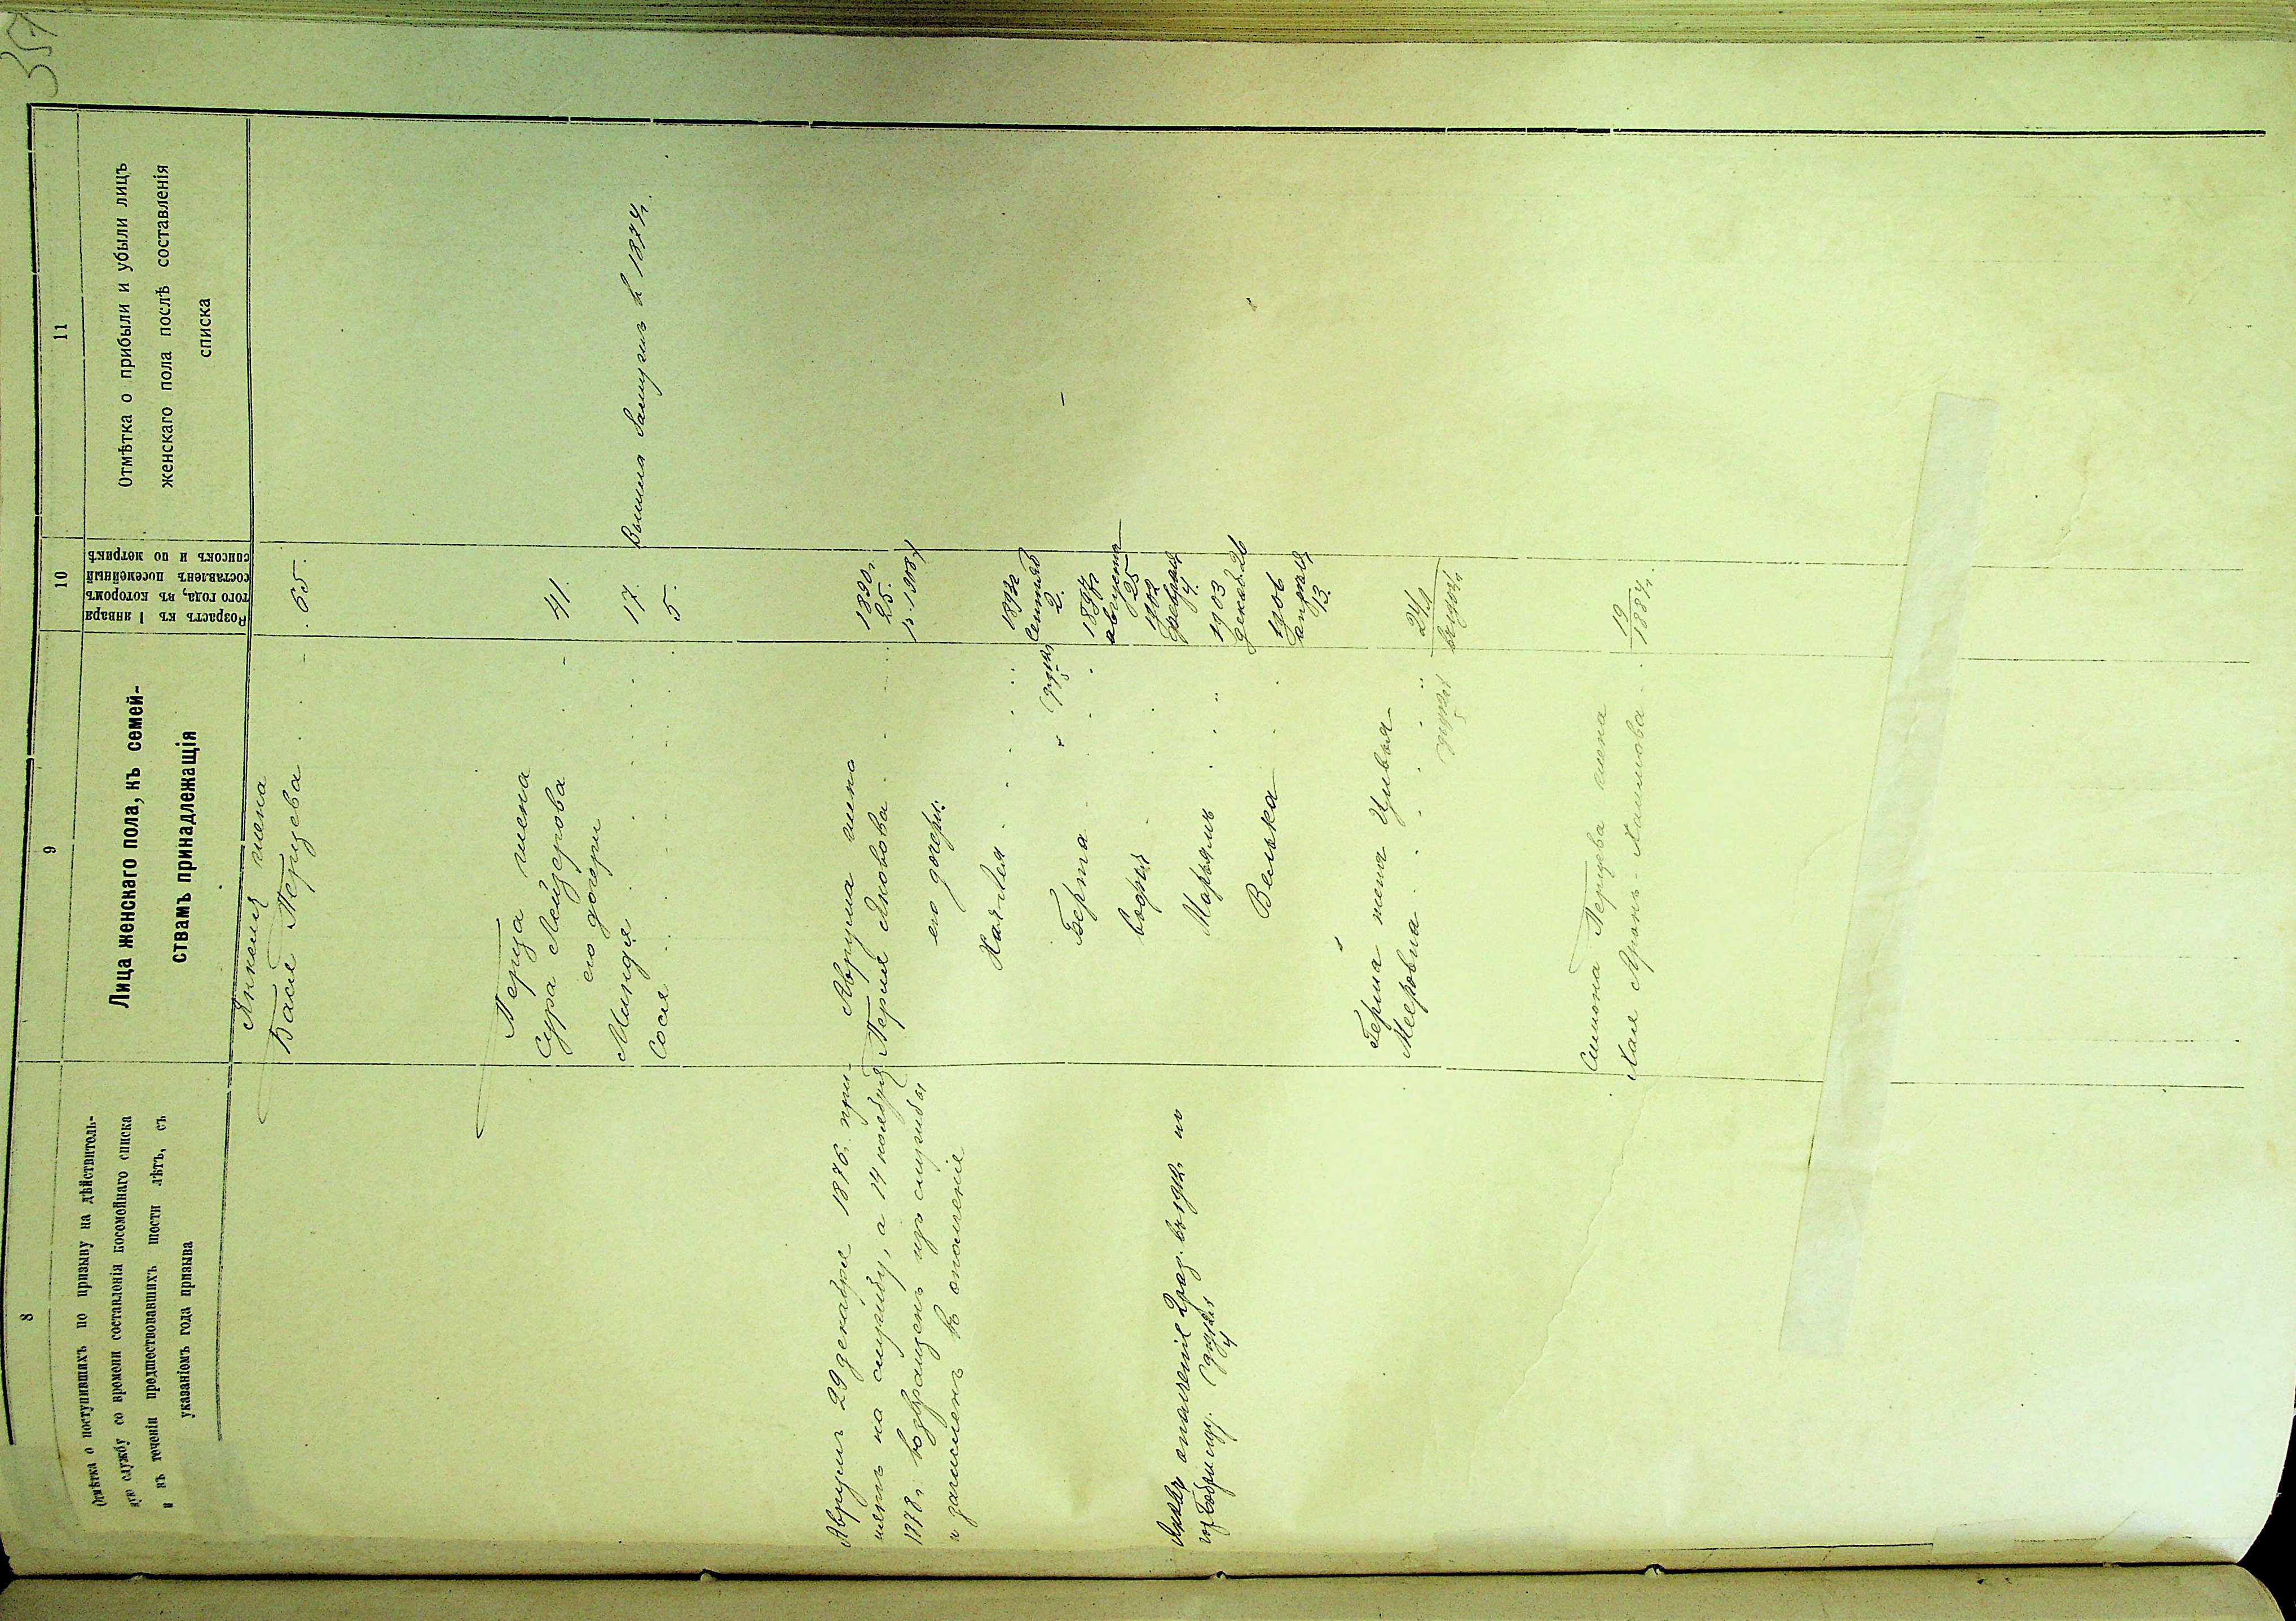 357
8
9
10
11
Отмѣтка о поступившихъ по призыву на дѣйствитель-
ную службу со времени составленія посемейнаго списка
и въ теченіи предшествовавшихъ шести лѣтъ, съ
указаніемъ года призыва
Лица женскаго пола, къ семей-
ствамъ принадлежащія
Возрастъ къ 1 января
того года, въ которомъ
составленъ посемейный
списокъ и по метрикѣ
Отмѣтка о прибыли и убыли лицъ
женскаго пола послѣ составленія
списка
Янкеля жена
Бася Перцева 65.
Перца жена
Сура Лейзерова 41.
его дочери
Миндя 17. Вышла замужъ в 1874г.
Сося 5.
Аврумъ 29 декабря 1876. при-
нятъ на службу, а 14 ноября
1878г. возвращенъ изъ службы
и зачисленъ въ ополченіе
Аврума жена
Перля Яковова 1890г.
25.
р. 1908г
его дочери:
Хая-Лея 1893г
Сентяб
2.
Берта 1897г
августа
25
1902
февраля
4.
Марьямъ 1903
декаб. 26
Велька 1906
апреля
13.
ополченіе
Герша жена Цивья
Мееровна 24/9
Симона Перцева жена
Хая Аронъ-Хаимова 19
1884г.